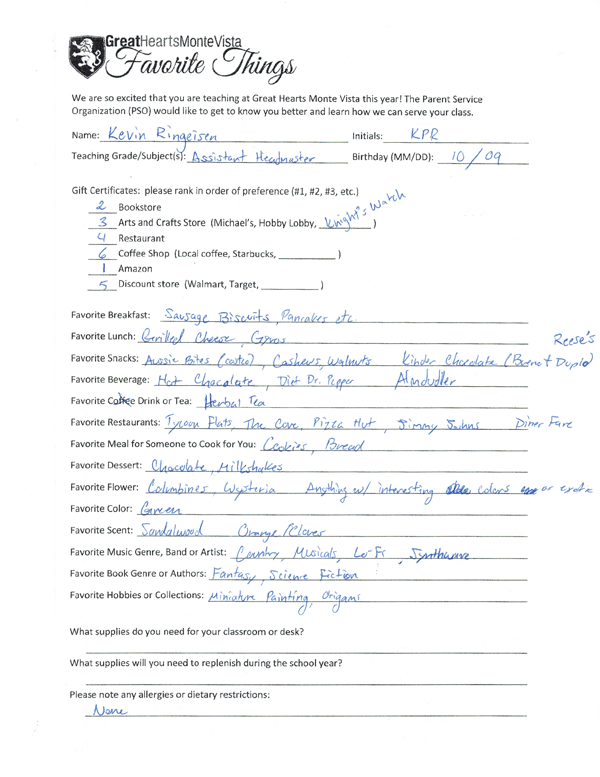 GreatHeartsMonteVista
Favorite Things
We are so excited that you are teaching at Great Hearts Monte Vista this year! The Parent Service
Organization (PSO) would like to get to know you better and learn how we can serve your class.
Name: Kevin Ringeisen Initials: KPR
Teaching Grade/Subject(s): Assistant Headmaster Birthday (MM/DD): 10/09
Gift Certificates: please rank in order of preference (#1, #2, #3, etc.)
2 Bookstore
3 Arts and Crafts Store (Michael's, Hobby Lobby, Knight's Watch)
4 Restaurant
6 Coffee Shop (Local coffee, Starbucks, ____________)
1 Amazon
5 Discount store (Walmart, Target, ____________)
Favorite Breakfast: Sausage Biscuits, Pancakes etc.
Favorite Lunch: Grilled Cheese, Gyros
Reese's
Favorite Snacks: Aussie Bites (costco), Cashews, Walnuts Kinder Chocolate (Bueno + Duplo)
Favorite Beverage: Hot Chocolate, Diet Dr. Pepper Almdudler
Favorite Coffee Drink or Tea: Herbal Tea
Favorite Restaurants: Tycoon Flats, The Cove, Pizza Hut, Jimmy Johns Diner Fare
Favorite Meal for Someone to Cook for You: Cookies, Bread
Favorite Dessert: Chocolate, Milkshakes
Favorite Flower: Columbines, Wysteria Anything w/ interesting colors or exotic
Favorite Color: Green
Favorite Scent: Sandalwood Orange/Cloves
Favorite Music Genre, Band or Artist: Country, Musicals, Lo-Fi, Synthwave
Favorite Book Genre or Authors: Fantasy, Science Fiction
Favorite Hobbies or Collections: Miniature Painting, Origami
What supplies do you need for your classroom or desk?
What supplies will you need to replenish during the school year?
Please note any allergies or dietary restrictions:
None